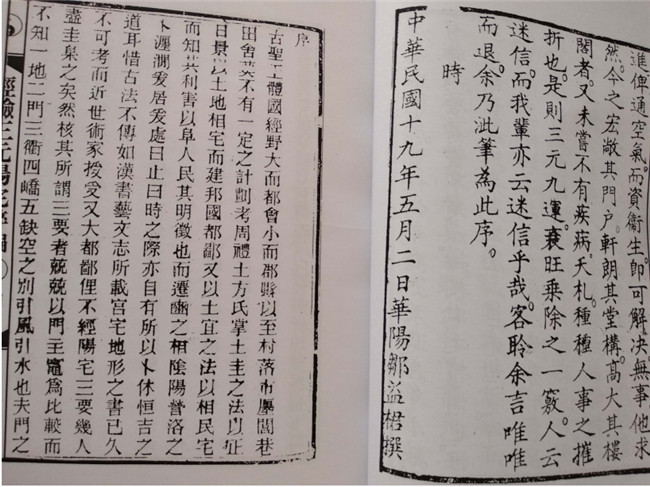 進。俾通空氣。而資衞生。卽可解决。無事他求。
然。今之宏敞其門户。軒朗其堂構。高大其樓
閣者。又未嘗不有疾病。夭札。種種人事之摧
折也。是則三元九運。衰旺乘除之一竅。人云
迷信。而我輩亦云迷信乎哉。客聆余言。唯唯
而退。余乃泚筆為此序。
時
中華民國十九年五月二日華陽鄒益桾撰
序
古聖王體國經野大而都會小而郡縣以至村落市廛閭巷
田舍莫不有一定之計劃考周禮土方氏掌土圭之法以致
日景以土地相宅而建邦國都鄙又以土宜之法以相民宅
而知其利害以阜人民其明徵也而遷豳之相陰陽營洛之
卜瀍澗爰居爰處曰止曰時之際亦自有所以卜休恒吉之
道耳惜古法不傳如漢書藝文志所載宮宅地形之書已久
不可考而近世術家授受又大都鄙俚不經陽宅三要幾人
盡圭臬之矣然核其所謂三要者兢兢以門主竈爲比較而
不知一地二門三衢四嶠五缺空之別引風引水也夫門之
經驗三元陽